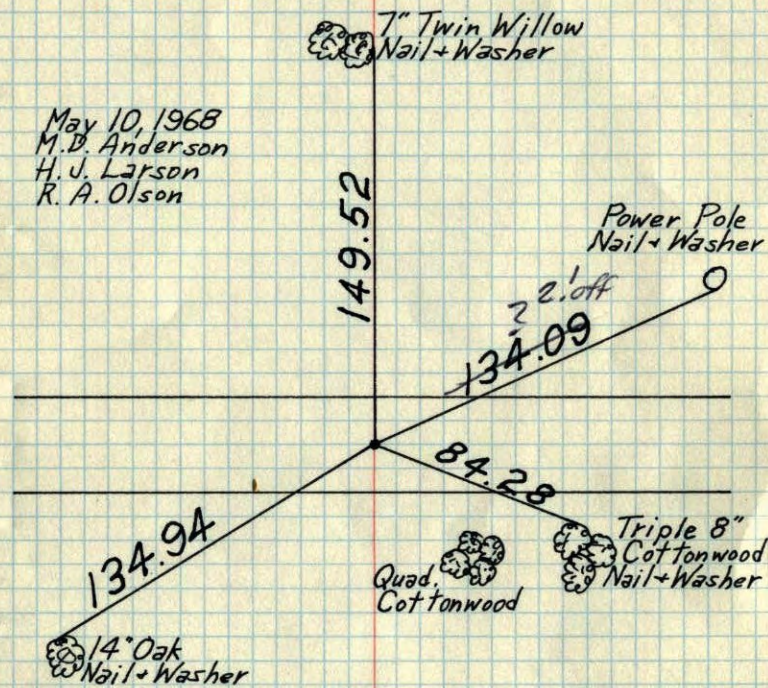 7" Twin Willow
Nail + Washer
May 10, 1968
M.D. Anderson
H. J. Larson
R. A. Olson
149.52
Power Pole
Nail + Washer
? 2.' off
134.09
84.28
134.94
Triple 8"
Cottonwood
Nail + Washer
Quad.
Cottonwood
14" Oak
Nail + Washer